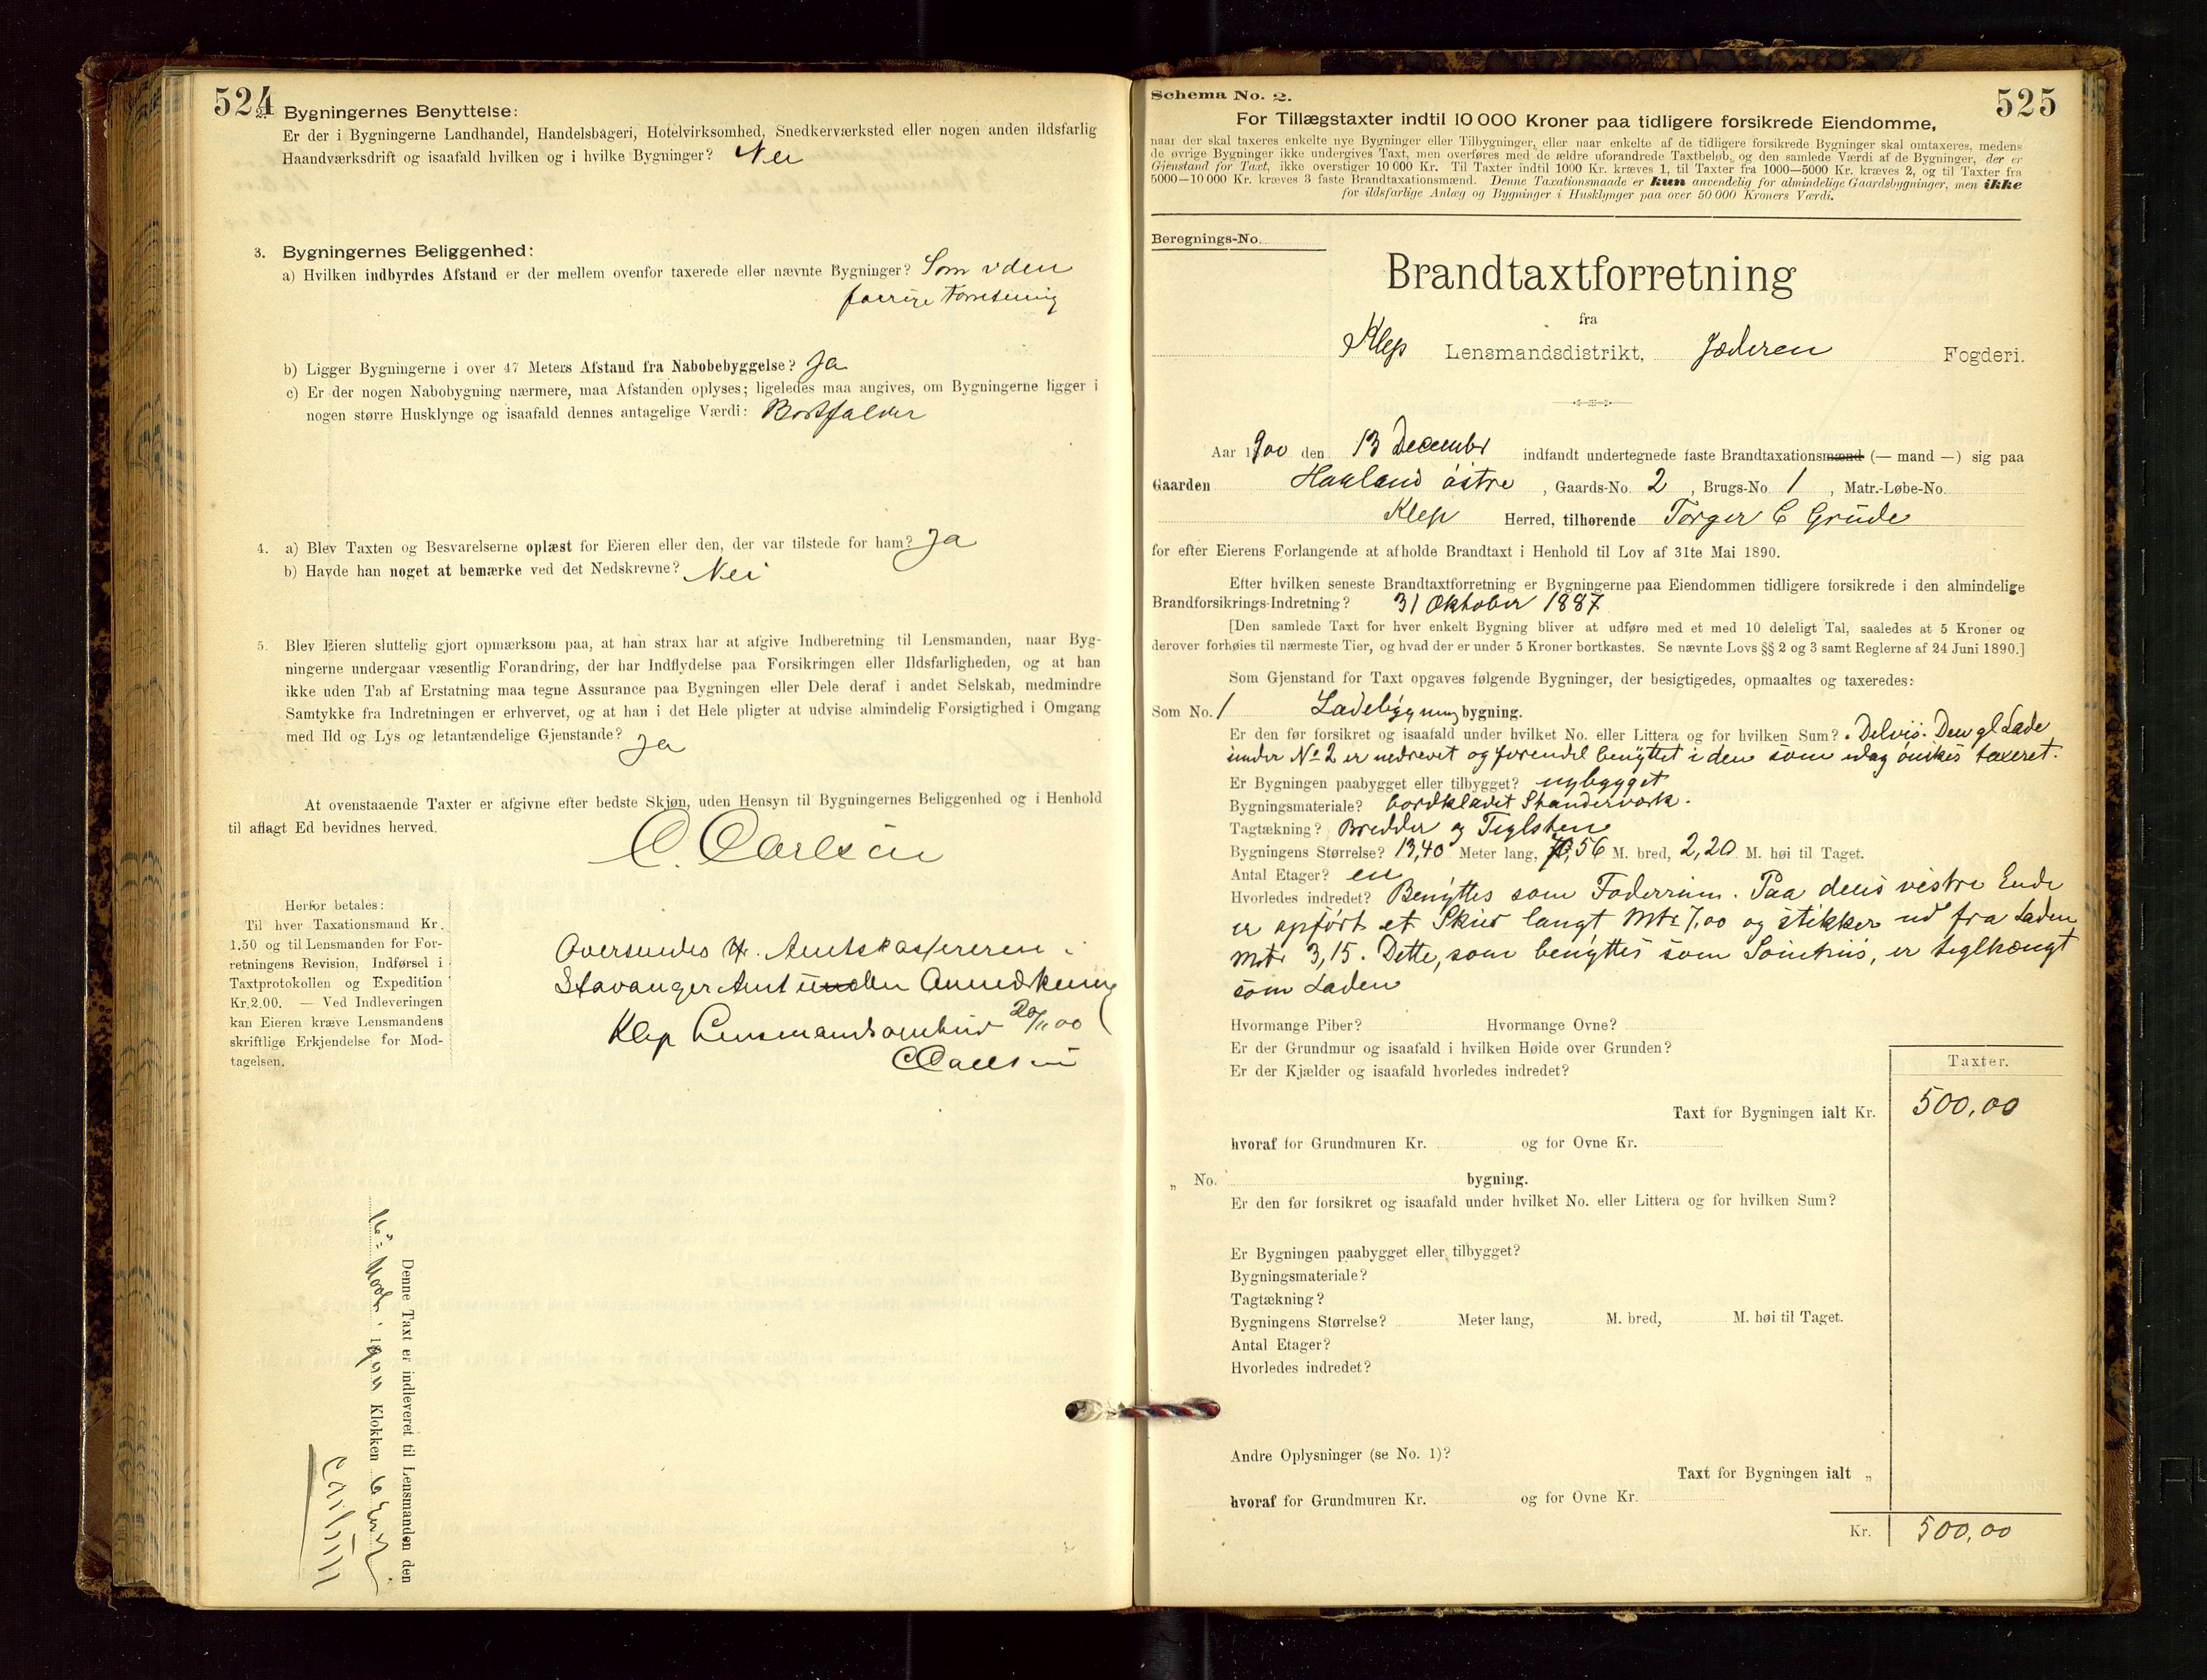 524
2. Bygningernes Benyttelse:
Er der i Bygningerne Landhandel, Handelsbageri, Hotelvirksomhed, Snedkerværksted eller nogen anden ildsfarlig
Haandværksdrift og isaafald hvilken og i hvilke Bygninger? Nei
3. Bygningernes Beliggenhed:
a) Hvilken indbyrdes Afstand er der mellem ovenfor taxerede eller nævnte Bygninger? Som i den
forrige Forretning
b) Ligger Bygningerne i over 47 Meters Afstand fra Nabobebyggelse? Ja
c) Er der nogen Nabobygning nærmere, maa Afstanden oplyses; ligeledes maa angives, om Bygningerne ligger i
nogen større Husklynge og isaafald dennes antagelige Værdi: Bortfalder
4. a) Blev Taxten og Besvarelserne oplæst for Eieren eller den, der var tilstede for ham? Ja
b) Havde han noget at bemærke ved det Nedskrevne? Nei
5. Blev Eieren sluttelig gjort opmærksom paa, at han strax har at afgive Indberetning til Lensmanden, naar Byg-
ningerne undergaar væsentlig Forandring, der har Indflydelse paa Forsikringen eller Ildsfarligheden, og at han
ikke uden Tab af Erstatning maa tegne Assurance paa Bygningen eller Dele deraf i andet Selskab, medmindre
Samtykke fra Indretningen er erhvervet, og at han i det Hele pligter at udvise almindelig Forsigtighed i Omgang
med Ild og Lys og letantændelige Gjenstande? Ja
At ovenstaaende Taxter er afgivne efter bedste Skjøn, uden Hensyn til Bygningernes Beliggenhed og i Henhold
til aflagt Ed bevidnes herved.
C. Carlsen
Herfor betales:
Til hver Taxationsmand Kr.
1.50 og til Lensmanden for For-
retningens Revision, Indførsel i
Taxtprotokollen og Expedition
Kr. 2.00. — Ved Indleveringen
kan Eieren kræve Lensmandens
skriftlige Erkjendelse for Mod-
tagelsen.
Oversendes Hr. Amtskassereren i
Stavanger Amt uden Anmerkning
Klep Lensmandsombud 20/11 00
C Carlsen
Denne Taxt er indleveret til Lensmanden den
16de Novbr. 1900 Klokken 6 Em
Carlsen
Schema No. 2.
525
For Tillægstaxter indtil 10 000 Kroner paa tidligere forsikrede Eiendomme,
naar der skal taxeres enkelte nye Bygninger eller Tilbygninger, eller naar enkelte af de tidligere forsikrede Bygninger skal omtaxeres, medens
de øvrige Bygninger ikke undergives Taxt, men overføres med de ældre uforandrede Taxtbeløb, og den samlede Værdi af de Bygninger, der er
Gjenstand for Taxt, ikke overstiger 10 000 Kr. Til Taxter indtil 1000 Kr. kræves 1, til Taxter fra 1000—5000 Kr. kræves 2, og til Taxter fra
5000—10 000 Kr. kræves 3 faste Brandtaxationsmænd. Denne Taxationsmaade er kun anvendelig for almindelige Gaardsbygninger, men ikke
for ildsfarlige Anlæg og Bygninger i Husklynger paa over 50 000 Kroners Værdi.
Beregnings-No.
Brandtaxtforretning
fra
Klep Lensmandsdistrikt, Jæderen Fogderi.
Aar 1900 den 13 December indfandt undertegnede faste Brandtaxationsmænd (— mand —) sig paa
Gaarden Haaland østre, Gaards-No. 2, Brugs-No. 1, Matr.-Løbe-No.
Klep Herred, tilhørende Torger C Grude
for efter Eierens Forlangende at afholde Brandtaxt i Henhold til Lov af 31te Mai 1890.
Efter hvilken seneste Brandtaxtforretning er Bygningerne paa Eiendommen tidligere forsikrede i den almindelige
Brandforsikrings-Indretning? 31 Oktober 1887
[Den samlede Taxt for hver enkelt Bygning bliver at udføre med et med 10 deleligt Tal, saaledes at 5 Kroner og
derover forhøies til nærmeste Tier, og hvad der er under 5 Kroner bortkastes. Se nævnte Lovs §§ 2 og 3 samt Reglerne af 24 Juni 1890.]
Som Gjenstand for Taxt opgaves følgende Bygninger, der besigtigedes, opmaaltes og taxeredes:
Som No. 1 Ladebygning bygning.
Er den før forsikret og isaafald under hvilket No. eller Littera og for hvilken Sum? Delvis. Den gl Lade
under No 2 er nedrevet og forendel benyttet i den som idag ønskes taxeret.
Er Bygningen paabygget eller tilbygget? nybygget
Bygningsmateriale? bordklædet Standerværk.
Tagtækning? Bredder og Teglsten
Bygningens Størrelse? 13,40 Meter lang, 7,56 M. bred, 2,20 M. høi til Taget.
Antal Etager? en
Hvorledes indredet? Benyttes som Foderrum. Paa dens vestre Ende
er opført et Skur langt Mtr 7,00 og stikker ud fra Laden
Mtr 3,15. Dette, som benyttes som , er teglhængt
som Laden
Hvormange Piber? Hvormange Ovne?
Er der Grundmur og isaafald i hvilken Høide over Grunden?
Er der Kjælder og isaafald hvorledes indredet?
Taxter.
Taxt for Bygningen ialt Kr. 500,00
hvoraf for Grundmuren Kr. og for Ovne Kr.
„ No. bygning.
Er den før forsikret og isaafald under hvilket No. eller Littera og for hvilken Sum?
Er Bygningen paabygget eller tilbygget?
Bygningsmateriale?
Tagtækning?
Bygningens Størrelse? Meter lang, M. bred, M. høi til Taget.
Antal Etager?
Hvorledes indredet?
Andre Oplysninger (se No. 1)?
Taxt for Bygningen ialt „
hvoraf for Grundmuren Kr. og for Ovne Kr.
Kr. 500,00